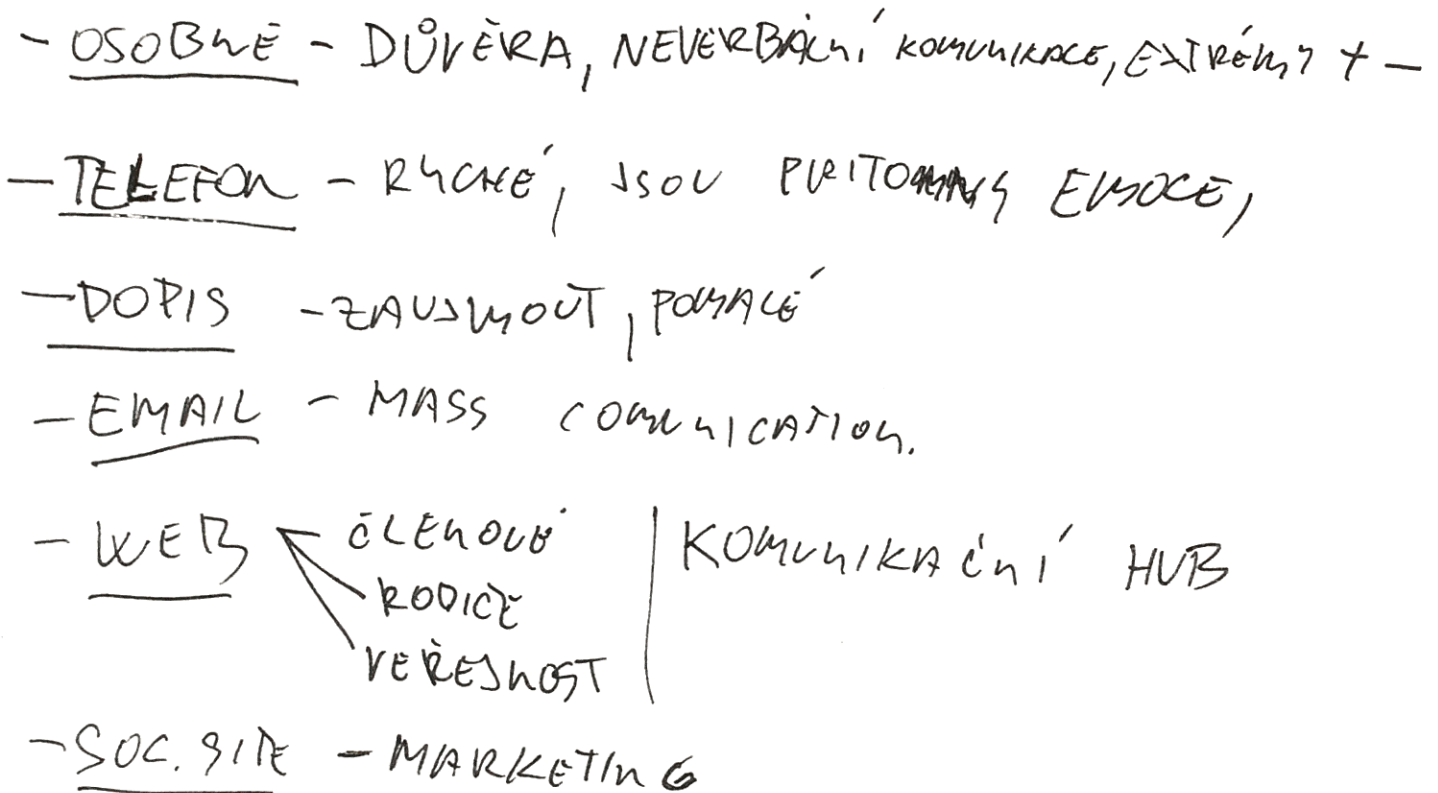 - OSOBNĚ - DŮVĚRA, NEVERBÁLNÍ KOMUNIKACE, EXTRÉMY + -
- TELEFON - RYCHLÉ, JSOU PŘITOMNY EMOCE,
- DOPIS - ZAUJMOUT, POMALÉ
- EMAIL - MASS COMUNICATION.
- WEB - ČLENOVÉ | KOMUNIKAČNÍ HUB
RODIČE
VEŘEJNOST
- SOC. SITE - MARKETING